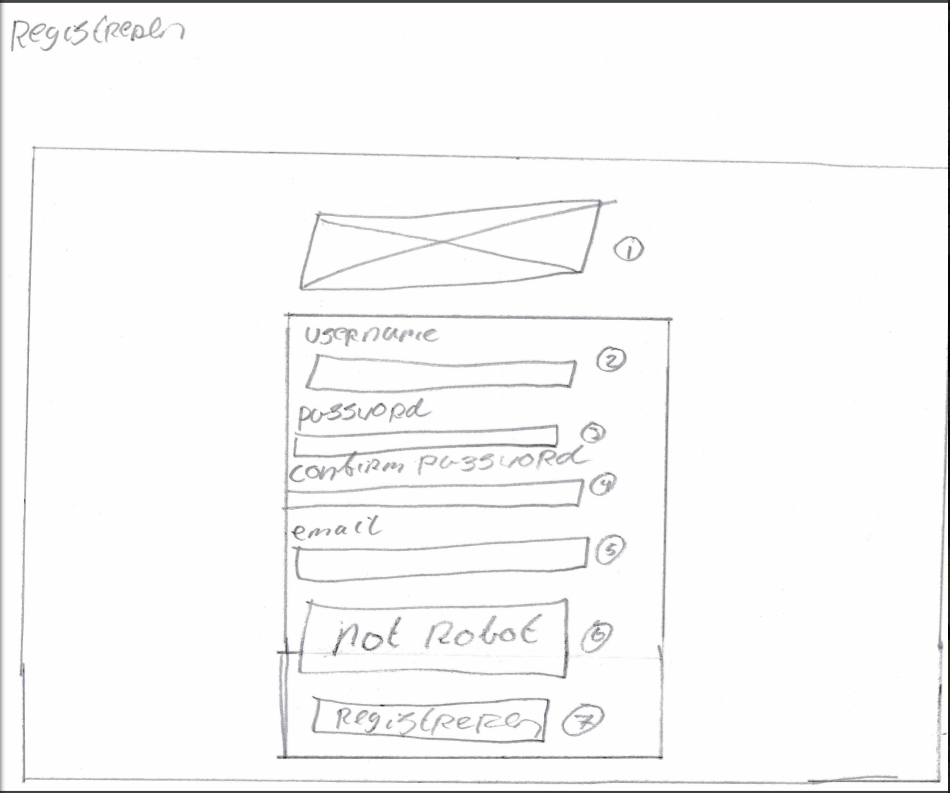 Registreren
1
username
2
password
3
confirm password
4
email
5
not Robot
6
Registreren
7